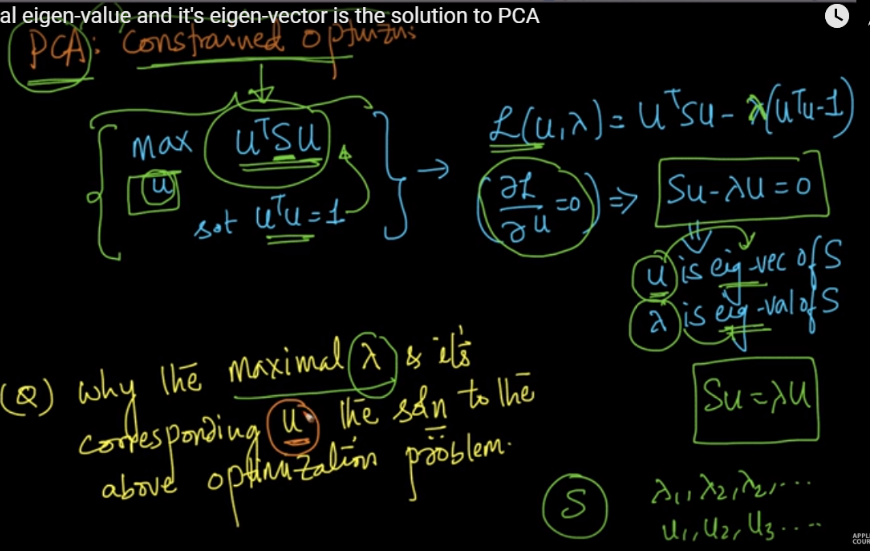 al eigen-value and it's eigen-vector is the solution to PCA
PCA: Constrained optimzn:
max uᵀSu
u
s.t uᵀu=1
→
ℒ(u,λ)= uᵀSu- λ(uᵀu-1)
(∂ℒ/∂u=0) => Su-λu=0
u is eig-vec of S
λ is eig-val of S
Su=λu
(Q) Why the maximal λ & it's
corresponding u the soln to the
above optimization problem.
S
λ₁,λ₂,λ₂,...
u₁,u₂,u₃....
APPLI
COUR